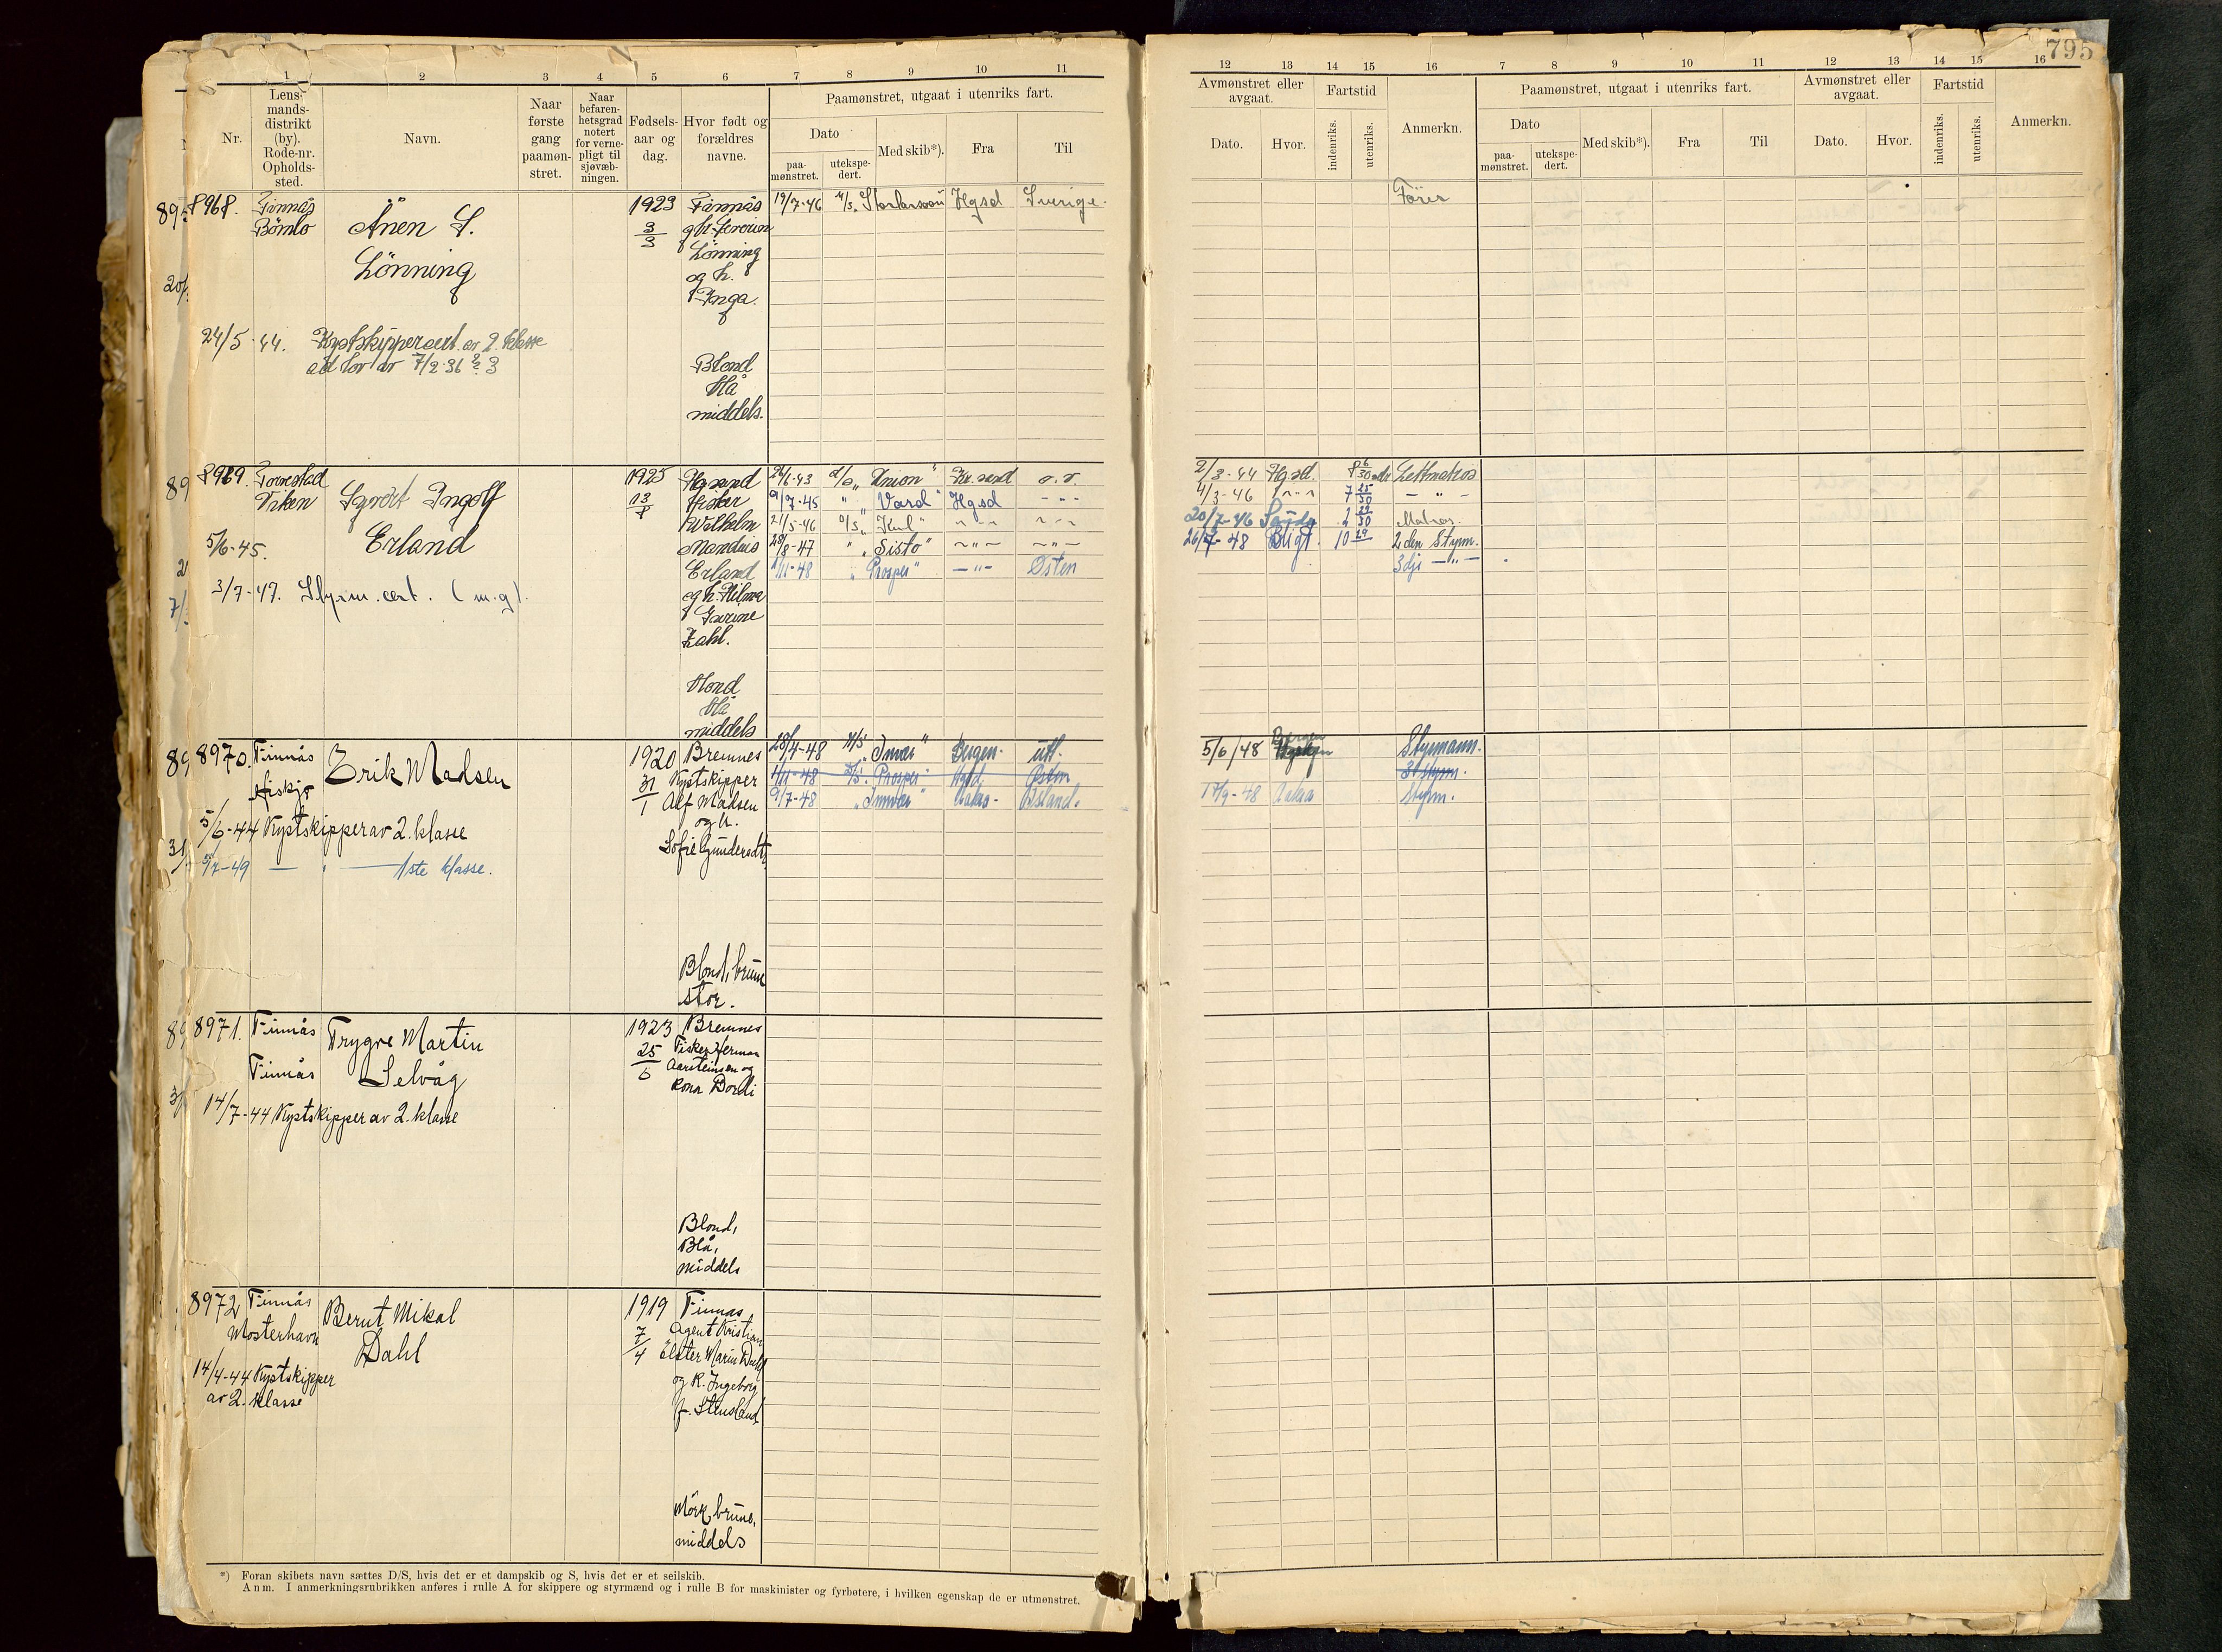 795
1 2 3 4 5 6 7 8 9 10 11
12 13 14 15 16 7 8 9 10 11 12 13 14 15 16
Nr.
Lens-
mands-
distrikt
(by).
Rode-nr.
Opholds-
sted.
Navn.
Naar
første
gang
paamøn-
stret.
Naar
befaren-
hetsgrad
notert
for verne-
pligt til
sjøvæb-
ningen.
Fødsels-
aar og
dag.
Hvor født og
forældres
navne.
Paamønstret, utgaat i utenriks fart.
Dato
paa-
mønstret.
utekspe-
dert.
Med skib*).
Fra
Til
Avmønstret eller
avgaat.
Dato.
Hvor.
Fartstid
indenriks.
utenriks.
Anmerkn.
Paamønstret, utgaat i utenriks fart.
Dato
paa-
mønstret.
utekspe-
dert.
Med skib*).
Fra
Til
Avmønstret eller
avgaat.
Dato.
Hvor.
Fartstid
indenriks.
utenriks.
Anmerkn.
8968. Finnås
Bömlo
Ånen S.
Lönning
1923
3/3
Finnås
Severin
Lönning
og h.
Inga.
19/7-46 Hgsd Sverige.
Förer
24/5-44. Kystskippersert. av 2. klasse
Blond
blå
middels.
8969. Torvestad
Viken
Sigvart Ingolf
Erland
1925
13/8
Fisker
Wilhelm
Mandius
Erland
og h. Hilma
Severine
Dahl.
24/6-43 "Union"
9/7-45 " "Vard" Hgsd - " -
21/5-46 " - " -
28/8-47 " "Sisto" - " - - " -
1/11-48 " "Prosper" - " - Østen
2/3-44 Hgsd. Lettmatros
4/3-46 - " -
20/7-46 Matros.
26/7-48 10 2den Styrm.
3dje - " -
5/6-45.
3/7-47. Styrm. cert. (m.g).
blond
blå
middels
8970. Finnås
Erik Madsen
1920
31/1
Bremnes
Kystskipper
Alf Madsen
og h.
Sofie Gunderadtr
28/4-48 M/S "Imvær" Bergen. utl.
1/11-48 "Prosper" Hgsd. Østen
9/7-48 "Imvær" Island.
5/6/48 Bergen Styrmann.
3 styrm.
17/9-48 Styrm.
5/6-44 Kystskipper av 2. klasse
5/7-49 — " — 1ste klasse.
Blond, brune
stor.
8971. Finnås
Finnås
Trygve Martin
Selvåg
1923
25/5
Bremnes
Fisker Herman
Aarsteinsen og
kona Dordi
14/7-44 Kystskipper av 2. klasse
Blond,
Blå,
middels
8972 Finnås
Mosterhavn
Bernt Mikal
Dahl
1919
7/4
Finnas
Agent Kristian
Elster Marin Dahl
og k. Ingeborg
f. Stensland
14/4-44 Kystskipper
av 2. klasse
Mörk, brune,
middels
*) Foran skibets navn sættes D/S, hvis det er et dampskib og S, hvis det er et seilskib.
Anm. I anmerkningsrubrikken anføres i rulle A for skippere og styrmænd og i rulle B for maskinister og fyrbøtere, i hvilken egenskap de er utmønstret.